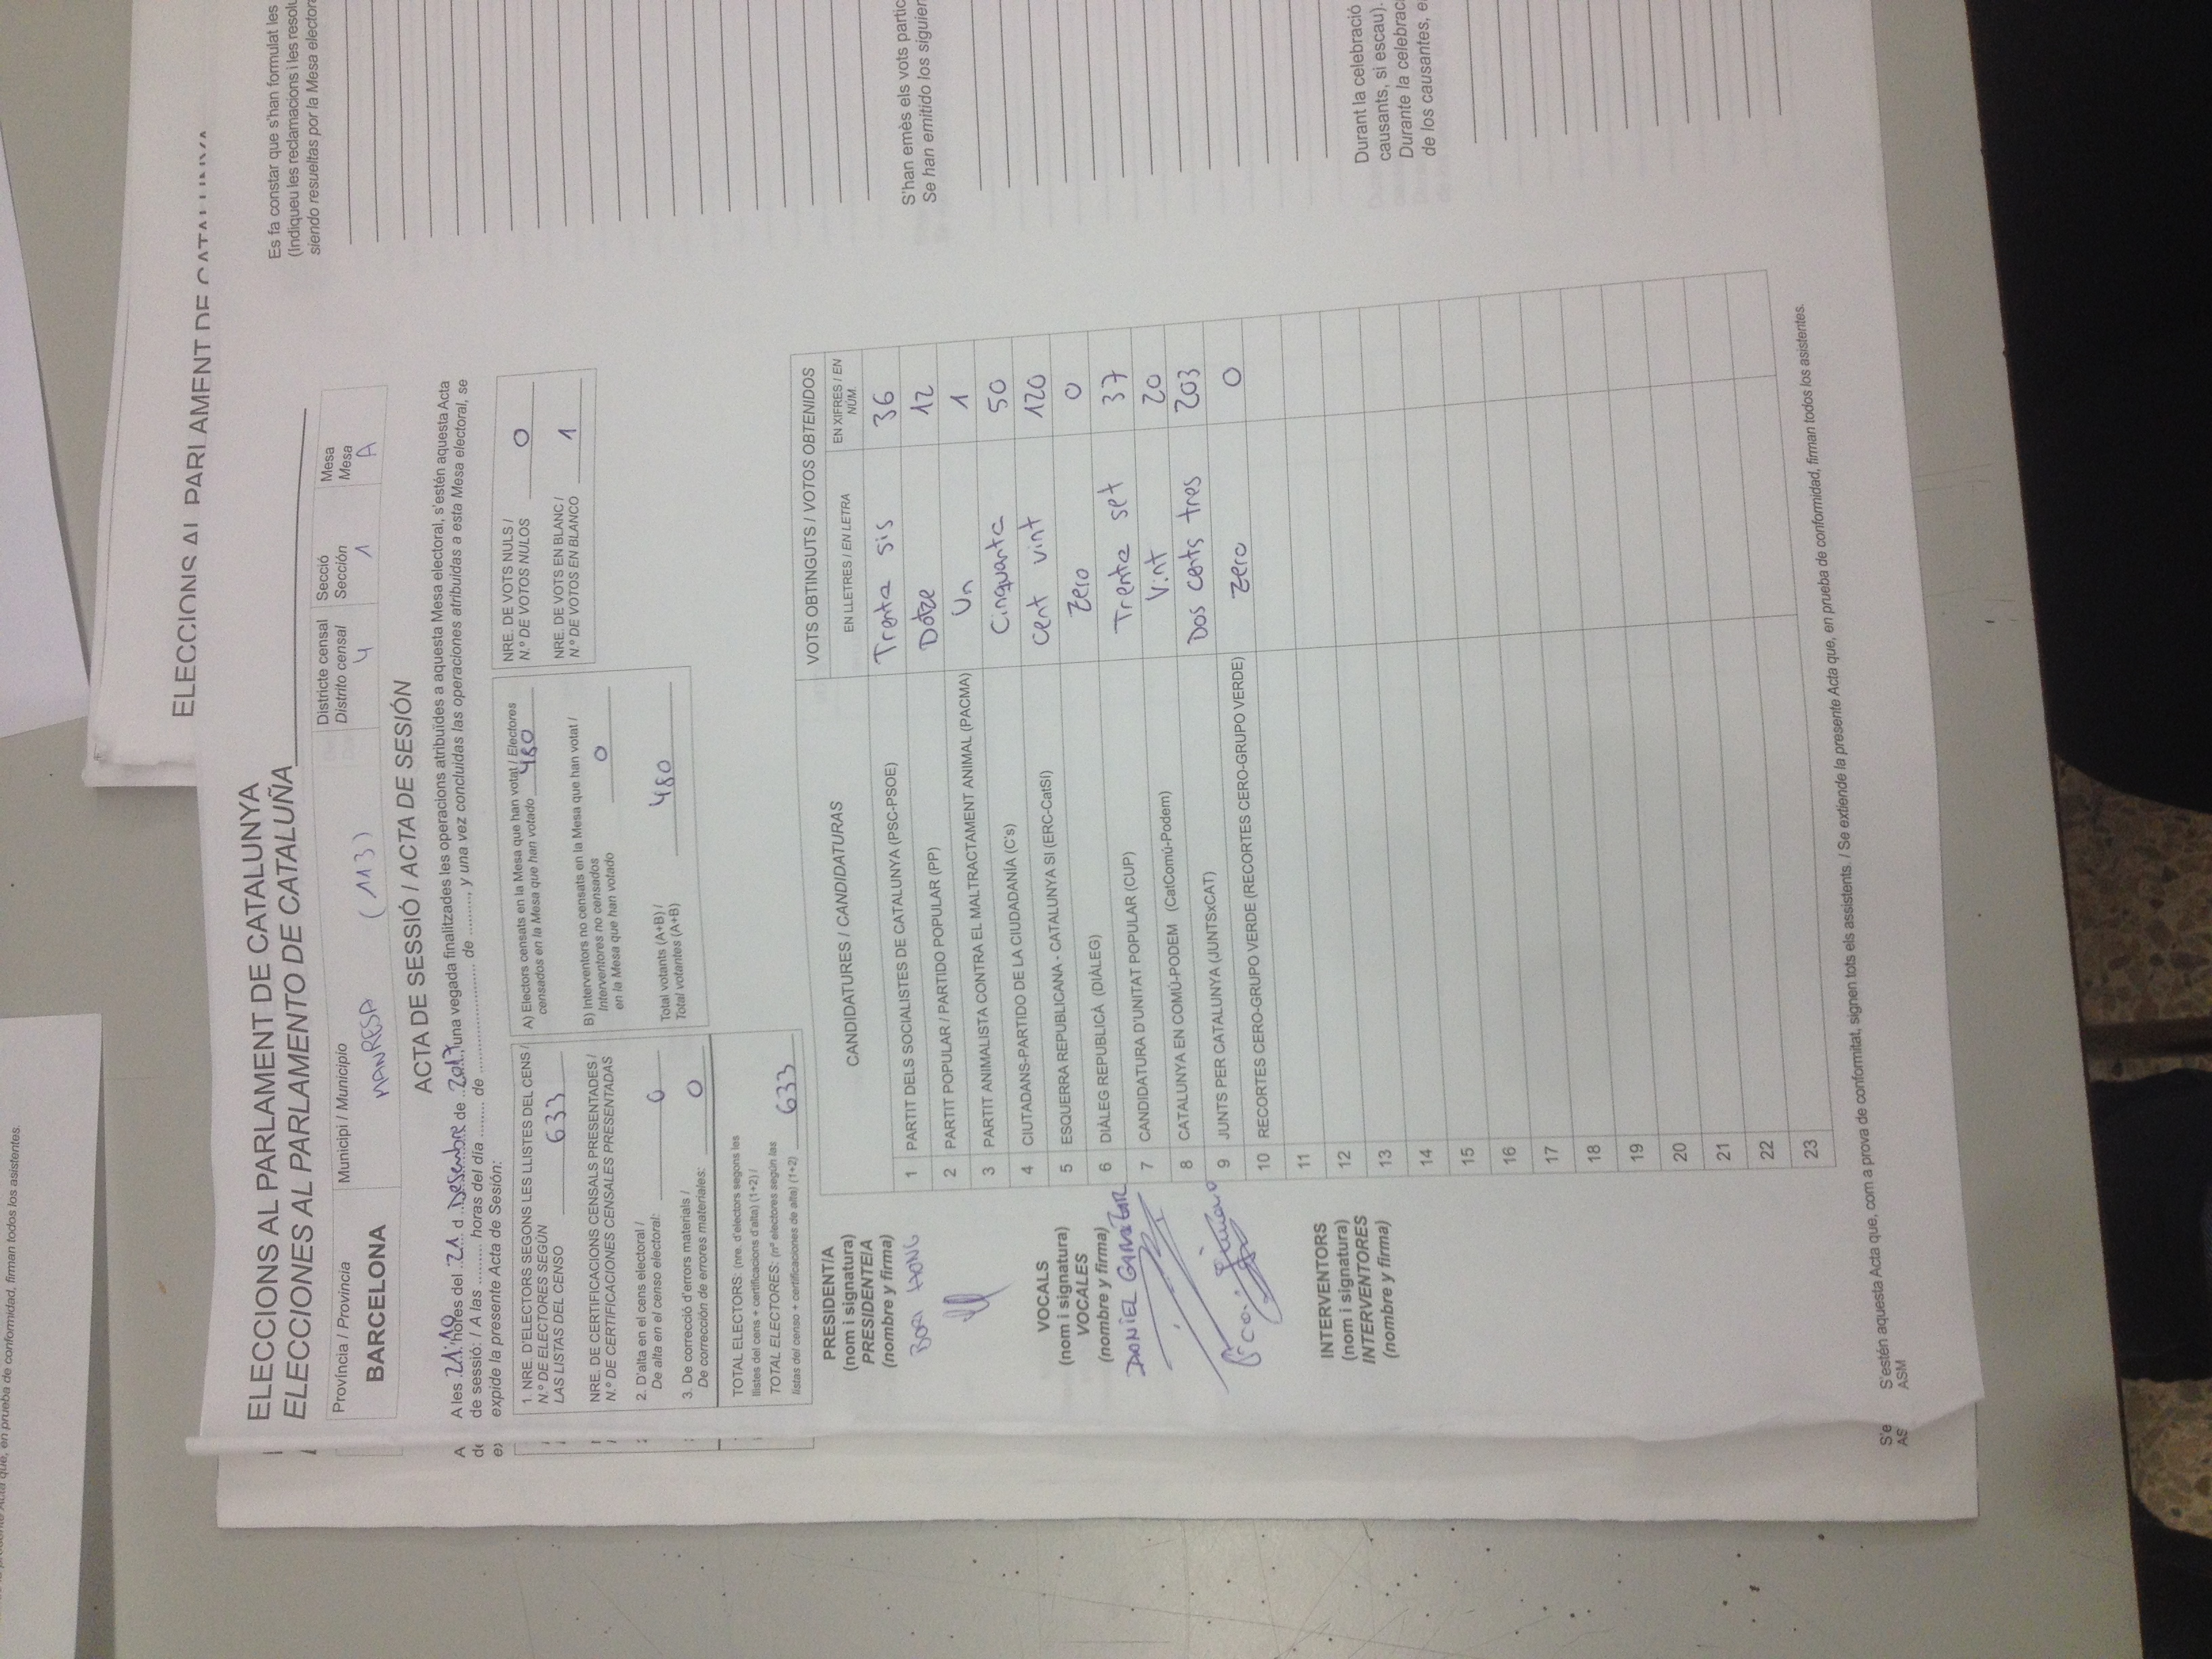 presente Acta que, en prueba de conformidad, firman todos los asistentes.
ELECCIONS AL PARLAMENT DE CATALUNYA
ELECCIONS AL PARLAMENT DE CATALUNYA
ELECCIONES AL PARLAMENTO DE CATALUÑA
Província / Provincia
BARCELONA
Municipi / Municipio
MANRESA (113)
Districte censal
Distrito censal
4
Secció
Sección
1
Mesa
Mesa
A
ACTA DE SESSIÓ / ACTA DE SESIÓN
A les 21:10 hores del 21 d Desembre de 2017, una vegada finalitzades les operacions atribuïdes a aquesta Mesa electoral, s'estén aquesta Acta
de sessió: / A las ......... horas del día ........ de ........................ de ........., y una vez concluidas las operaciones atribuidas a esta Mesa electoral, se
expide la presente Acta de Sesión:
1. NRE. D'ELECTORS SEGONS LES LLISTES DEL CENS /
N.º DE ELECTORES SEGÚN
LAS LISTAS DEL CENSO 633
NRE. DE CERTIFICACIONS CENSALS PRESENTADES /
N.º DE CERTIFICACIONES CENSALES PRESENTADAS
2. D'alta en el cens electoral /
De alta en el censo electoral: 0
3. De correcció d'errors materials /
De corrección de errores materiales: 0
TOTAL ELECTORS: (nre. d'electors segons les
llistes del cens + certificacions d'alta) (1+2) /
TOTAL ELECTORES: (nº electores según las
listas del censo + certificaciones de alta) (1+2) 633
A) Electors censats en la Mesa que han votat / Electores
censados en la Mesa que han votado 480
B) Interventors no censats en la Mesa que han votat /
Interventores no censados
en la Mesa que han votado 0
Total votants (A+B) /
Total votantes (A+B) 480
NRE. DE VOTS NULS /
N.º DE VOTOS NULOS 0
NRE. DE VOTS EN BLANC /
N.º DE VOTOS EN BLANCO 1
PRESIDENT/A
(nom i signatura)
PRESIDENTE/A
(nombre y firma)
HONG
VOCALS
(nom i signatura)
VOCALES
(nombre y firma)
DANIEL
INTERVENTORS
(nom i signatura)
INTERVENTORES
(nombre y firma)
CANDIDATURES / CANDIDATURAS
VOTS OBTINGUTS / VOTOS OBTENIDOS
EN LLETRES / EN LETRA
EN XIFRES / EN
NÚM.
1 PARTIT DELS SOCIALISTES DE CATALUNYA (PSC-PSOE) Trenta sis 36
2 PARTIT POPULAR / PARTIDO POPULAR (PP) Dotze 12
3 PARTIT ANIMALISTA CONTRA EL MALTRACTAMENT ANIMAL (PACMA) Un 1
4 CIUTADANS-PARTIDO DE LA CIUDADANÍA (C's) Cinquanta 50
5 ESQUERRA REPUBLICANA - CATALUNYA SI (ERC-CatSí) Cent vint 120
6 DIÀLEG REPUBLICÀ (DIÀLEG) Zero 0
7 CANDIDATURA D'UNITAT POPULAR (CUP) Trenta set 37
8 CATALUNYA EN COMÚ-PODEM (CatComú-Podem) Vint 20
9 JUNTS PER CATALUNYA (JUNTSxCAT) Dos cents tres 203
10 RECORTES CERO-GRUPO VERDE (RECORTES CERO-GRUPO VERDE) Zero 0
11
12
13
14
15
16
17
18
19
20
21
22
23
S'estén aquesta Acta que, com a prova de conformitat, signen tots els assistents. / Se extiende la presente Acta que, en prueba de conformidad, firman todos los asistentes.
ASM
S'e
AS
Es fa constar que s'han formulat les
(Indiqueu les reclamacions i les resolu
siendo resueltas por la Mesa elector
S'han emès els vots partic
Se han emitido los siguien
Durant la celebració
causants, si escau).
Durante la celebrac
de los causantes, e